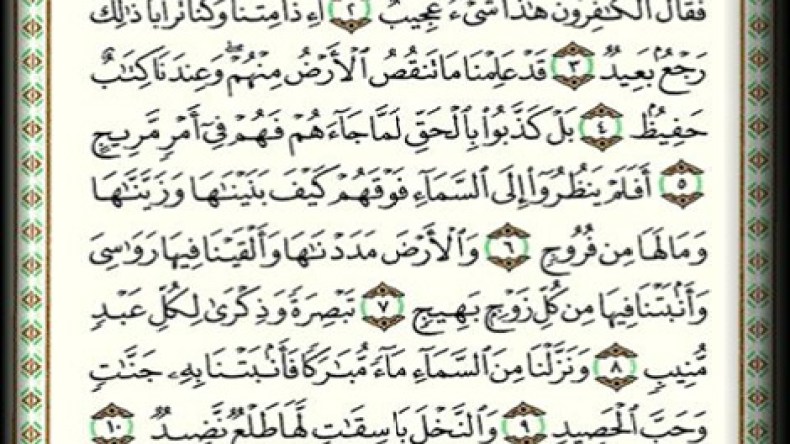 فَقَالَ ٱلْكَٰفِرُونَ هَٰذَا شَىْءٌ عَجِيبٌ ٢ أَءِذَا مِتْنَا وَكُنَّا تُرَابًا ذَٰلِكَ
رَجْعٌۢ بَعِيدٌ ٣ قَدْ عَلِمْنَا مَا تَنقُصُ ٱلْأَرْضُ مِنْهُمْ ۖ وَعِندَنَا كِتَٰبٌ
حَفِيظٌۢ ٤ بَلْ كَذَّبُوا۟ بِٱلْحَقِّ لَمَّا جَآءَهُمْ فَهُمْ فِىٓ أَمْرٍ مَّرِيجٍ
٥ أَفَلَمْ يَنظُرُوٓا۟ إِلَى ٱلسَّمَآءِ فَوْقَهُمْ كَيْفَ بَنَيْنَٰهَا وَزَيَّنَّٰهَا
وَمَا لَهَا مِن فُرُوجٍ ٦ وَٱلْأَرْضَ مَدَدْنَٰهَا وَأَلْقَيْنَا فِيهَا رَوَٰسِىَ
وَأَنۢبَتْنَا فِيهَا مِن كُلِّ زَوْجٍۭ بَهِيجٍ ٧ تَبْصِرَةً وَذِكْرَىٰ لِكُلِّ عَبْدٍ
مُّنِيبٍ ٨ وَنَزَّلْنَا مِنَ ٱلسَّمَآءِ مَآءً مُّبَٰرَكًا فَأَنۢبَتْنَا بِهِۦ جَنَّٰتٍ
وَحَبَّ ٱلْحَصِيدِ ٩ وَٱلنَّخْلَ بَاسِقَٰتٍ لَّهَا طَلْعٌ نَّضِيدٌ ١٠